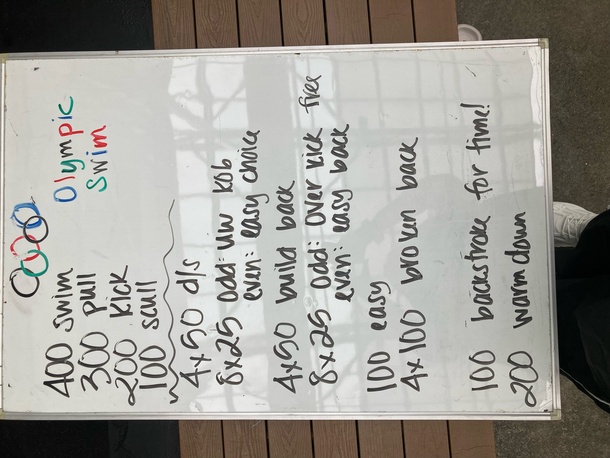 Olympic
Swim
400 swim
300 pull
200 kick
100 scull
4x50 d/s
8x25 odd: uw kob
even: easy choice
4x50 build back
8x25 odd: over kick free
even: easy back
100 easy
4x100 broken back
100 backstroke for time!
200 warm down